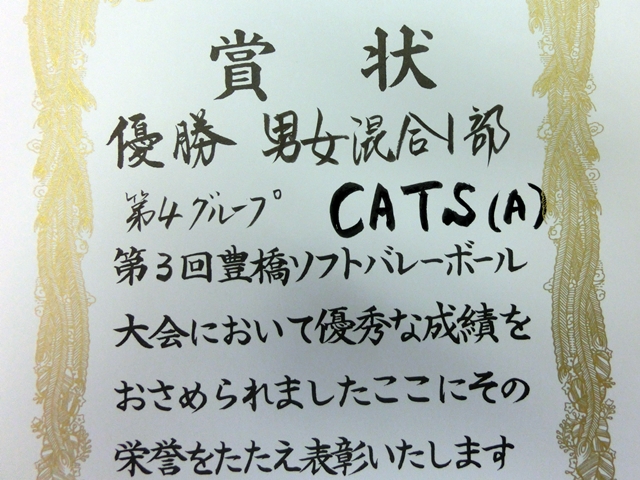 賞状
優勝 男女混合1部
第4グループ CATS(A)
第3回豊橋ソフトバレーボール
大会において優秀な成績を
おさめられましたここにその
栄誉をたたえ表彰いたします